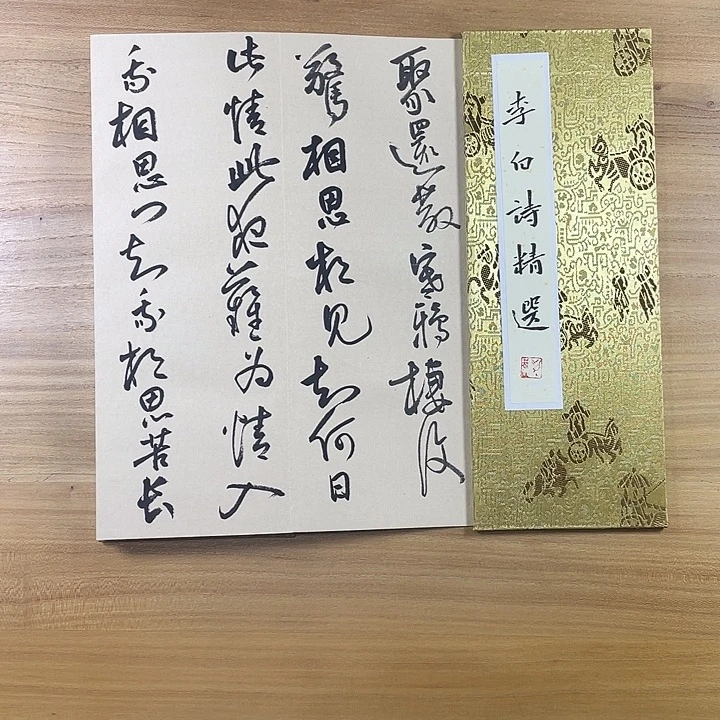 李白詩精選
聚還散寒鴉棲復
驚相思相見知何日
此情此夜難為情入
我相思門知我相思苦長